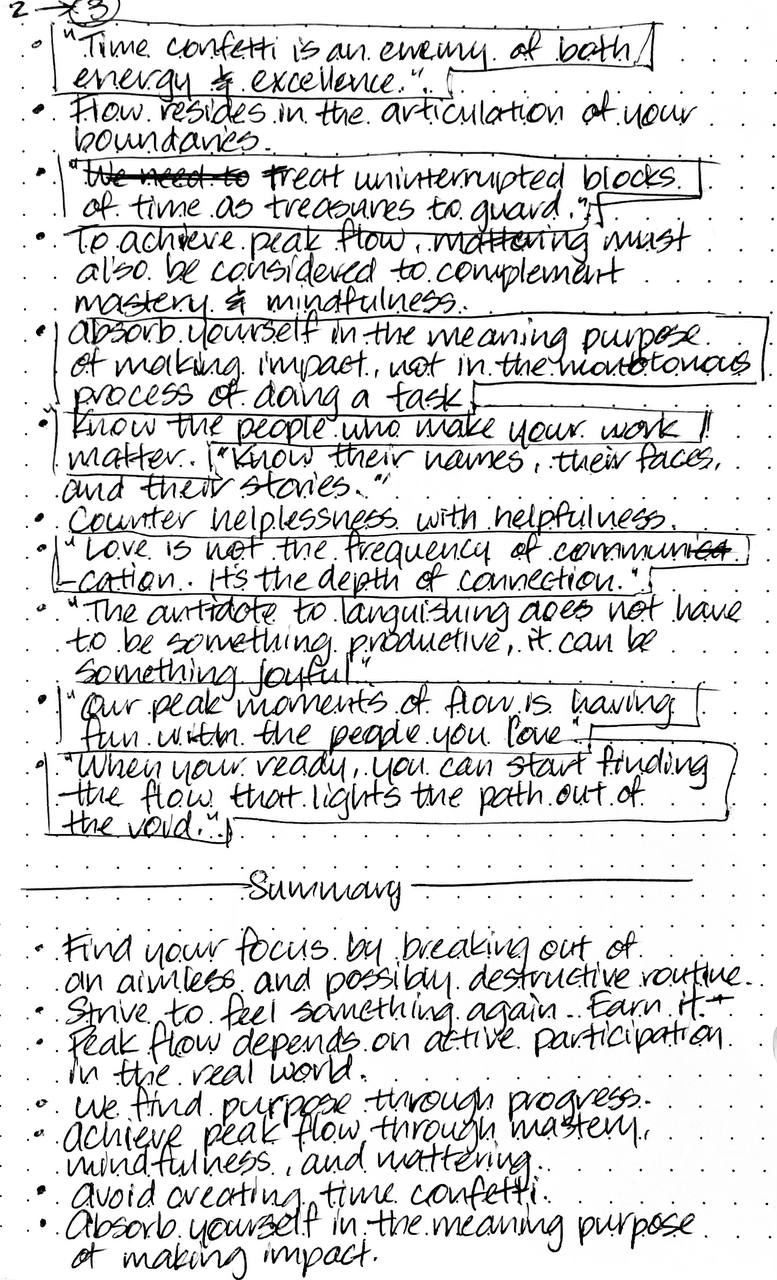 2 → 3
• "Time confetti is an enemy of both
energy & excellence."
• Flow resides in the articulation of your
boundaries.
• "We need to Treat uninterrupted blocks
of time as treasures to guard."
• To achieve peak flow, mattering must
also be considered to complement
mastery & mindfulness.
• Absorb yourself in the meaning purpose
of making impact, not in the monotonous
process of doing a task
• "Know the people who make your work
matter. "Know their names, their faces,
and their stories."
• Counter helplessness with helpfulness.
• "Love is not the frequency of communi
-cation. It's the depth of connection."
• "The antidote to languishing does not have
to be something productive, it can be
something joyful"
• "Our peak moments of flow is having
fun with the people you love"
• "When your ready, you can start finding
the flow that lights the path out of
the void."
Summary
• Find your focus by breaking out of
an aimless and possibly destructive routine.
• Strive to feel something again. Earn it.
• Peak flow depends on active participation
in the real world.
• We find purpose through progress.
• Achieve peak flow through mastery,
mindfulness, and mattering.
• Avoid creating time confetti.
• Absorb yourself in the meaning purpose
of making impact.